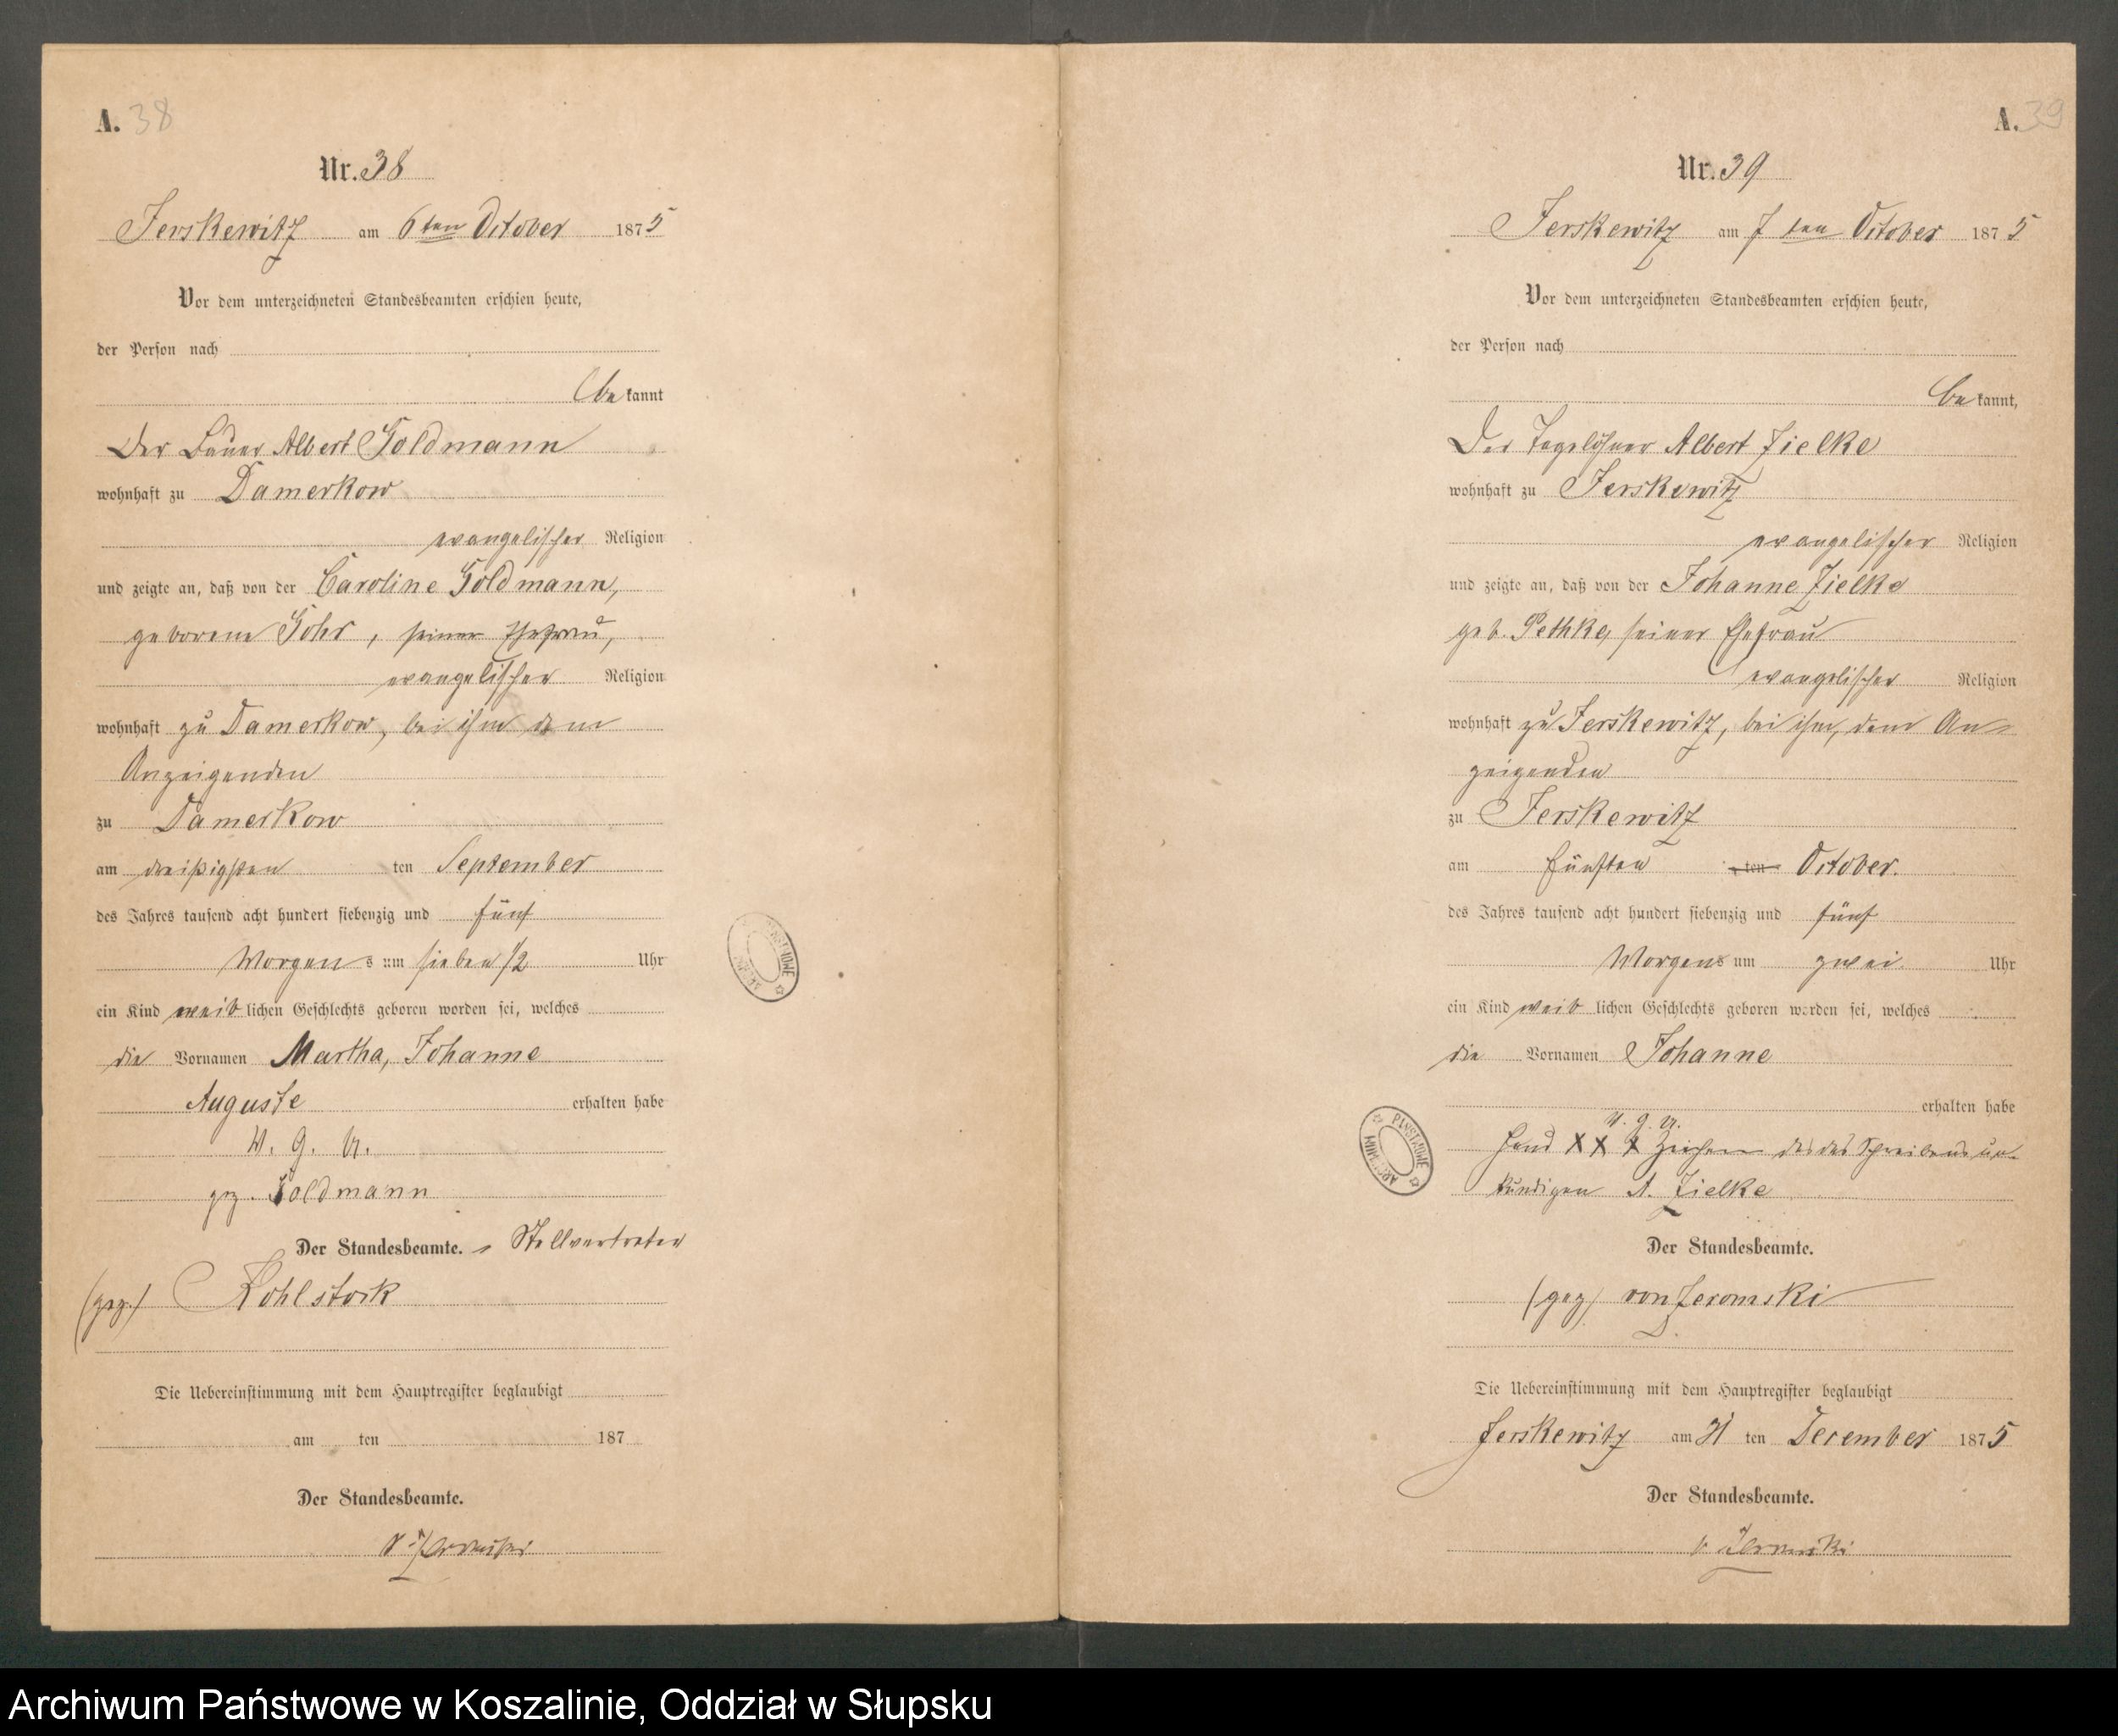 A. 38
Nr. 38
Jerskewitz am 6ten October 1875
Vor dem unterzeichneten Standesbeamten erschien heute,
der Person nach
bekannt
Der Bauer Albert Goldmann
wohnhaft zu Damerkow
evangelischer Religion
und zeigte an, daß von der Caroline Goldmann,
geborene Gohr, seiner Ehefrau,
evangelischer Religion
wohnhaft zu Damerkow, bei ihm dem
Anzeigenden
zu Damerkow
am dreißigsten ten September
des Jahres tausend acht hundert siebenzig und fünf
Morgens um sieben 1/2 Uhr
ein Kind weiblichen Geschlechts geboren worden sei, welches
die Vornamen Martha, Johanne
Auguste erhalten habe
V. G. U.
gez. Goldmann
Der Standesbeamte. Stellvertreter
(gez.) Kohlstock
Die Uebereinstimmung mit dem Hauptregister beglaubigt
am ten 187
Der Standesbeamte.
A. 39
Nr. 39
Jerskewitz am 7ten October 1875
Vor dem unterzeichneten Standesbeamten erschien heute,
der Person nach
bekannt,
Der Tagelöhner Albert Zielke
wohnhaft zu Jerskewitz
evangelischer Religion
und zeigte an, daß von der Johanne Zielke
geb. Pethke, seiner Ehefrau
evangelischer Religion
wohnhaft zu Jerskewitz, bei ihm, dem An-
zeigenden
zu Jerskewitz
am fünften ten October.
des Jahres tausend acht hundert siebenzig und fünf
Morgens um zwei Uhr
ein Kind weiblichen Geschlechts geboren worden sei, welches
die Vornamen Johanne
erhalten habe
V. g. U.
Hand XXX Zeichen des des Schreibens un-
kundigen A. Zielke
Der Standesbeamte.
(gez) von Zeromski
Die Uebereinstimmung mit dem Hauptregister beglaubigt
Jerskewitz am 31 ten December 1875
Der Standesbeamte.
v. Zeromski
Archiwum Państwowe w Koszalinie, Oddział w Słupsku